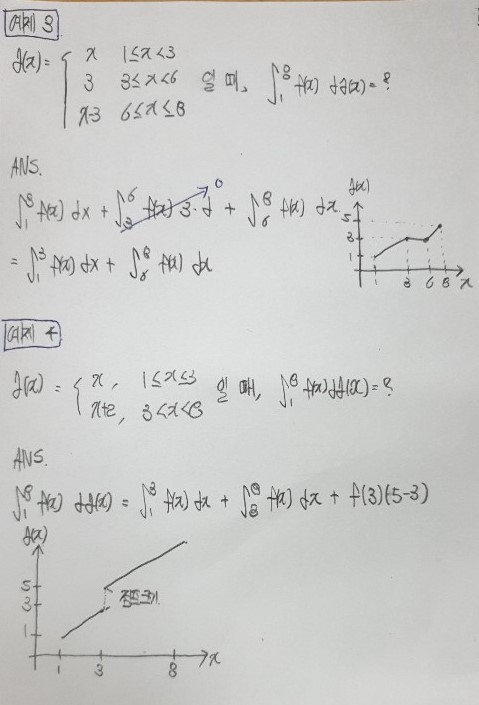 예제 3
g(x) = { x 1≤x<3
3 3≤x<6 일 때, ∫₁⁸ f(x) dg(x) = ?
x-3 6≤x≤8
ANS.
∫₁⁸ f(x) dx + ∫₃⁶ f(x) 3·d + ∫₆⁸ f(x) dx
0
= ∫₁³ f(x) dx + ∫₆⁸ f(x) dx
g(x)
5
3
1
1 3 6 8 x
예제 4
g(x) = { x, 1≤x≤3 일 때, ∫₁⁸ f(x) dg(x) = ?
x+2, 3<x<8
ANS.
∫₁⁸ f(x) dg(x) = ∫₁³ f(x) dx + ∫₃⁸ f(x) dx + f(3)(5-3)
g(x)
5
3
1
점프크기
1 3 8 x